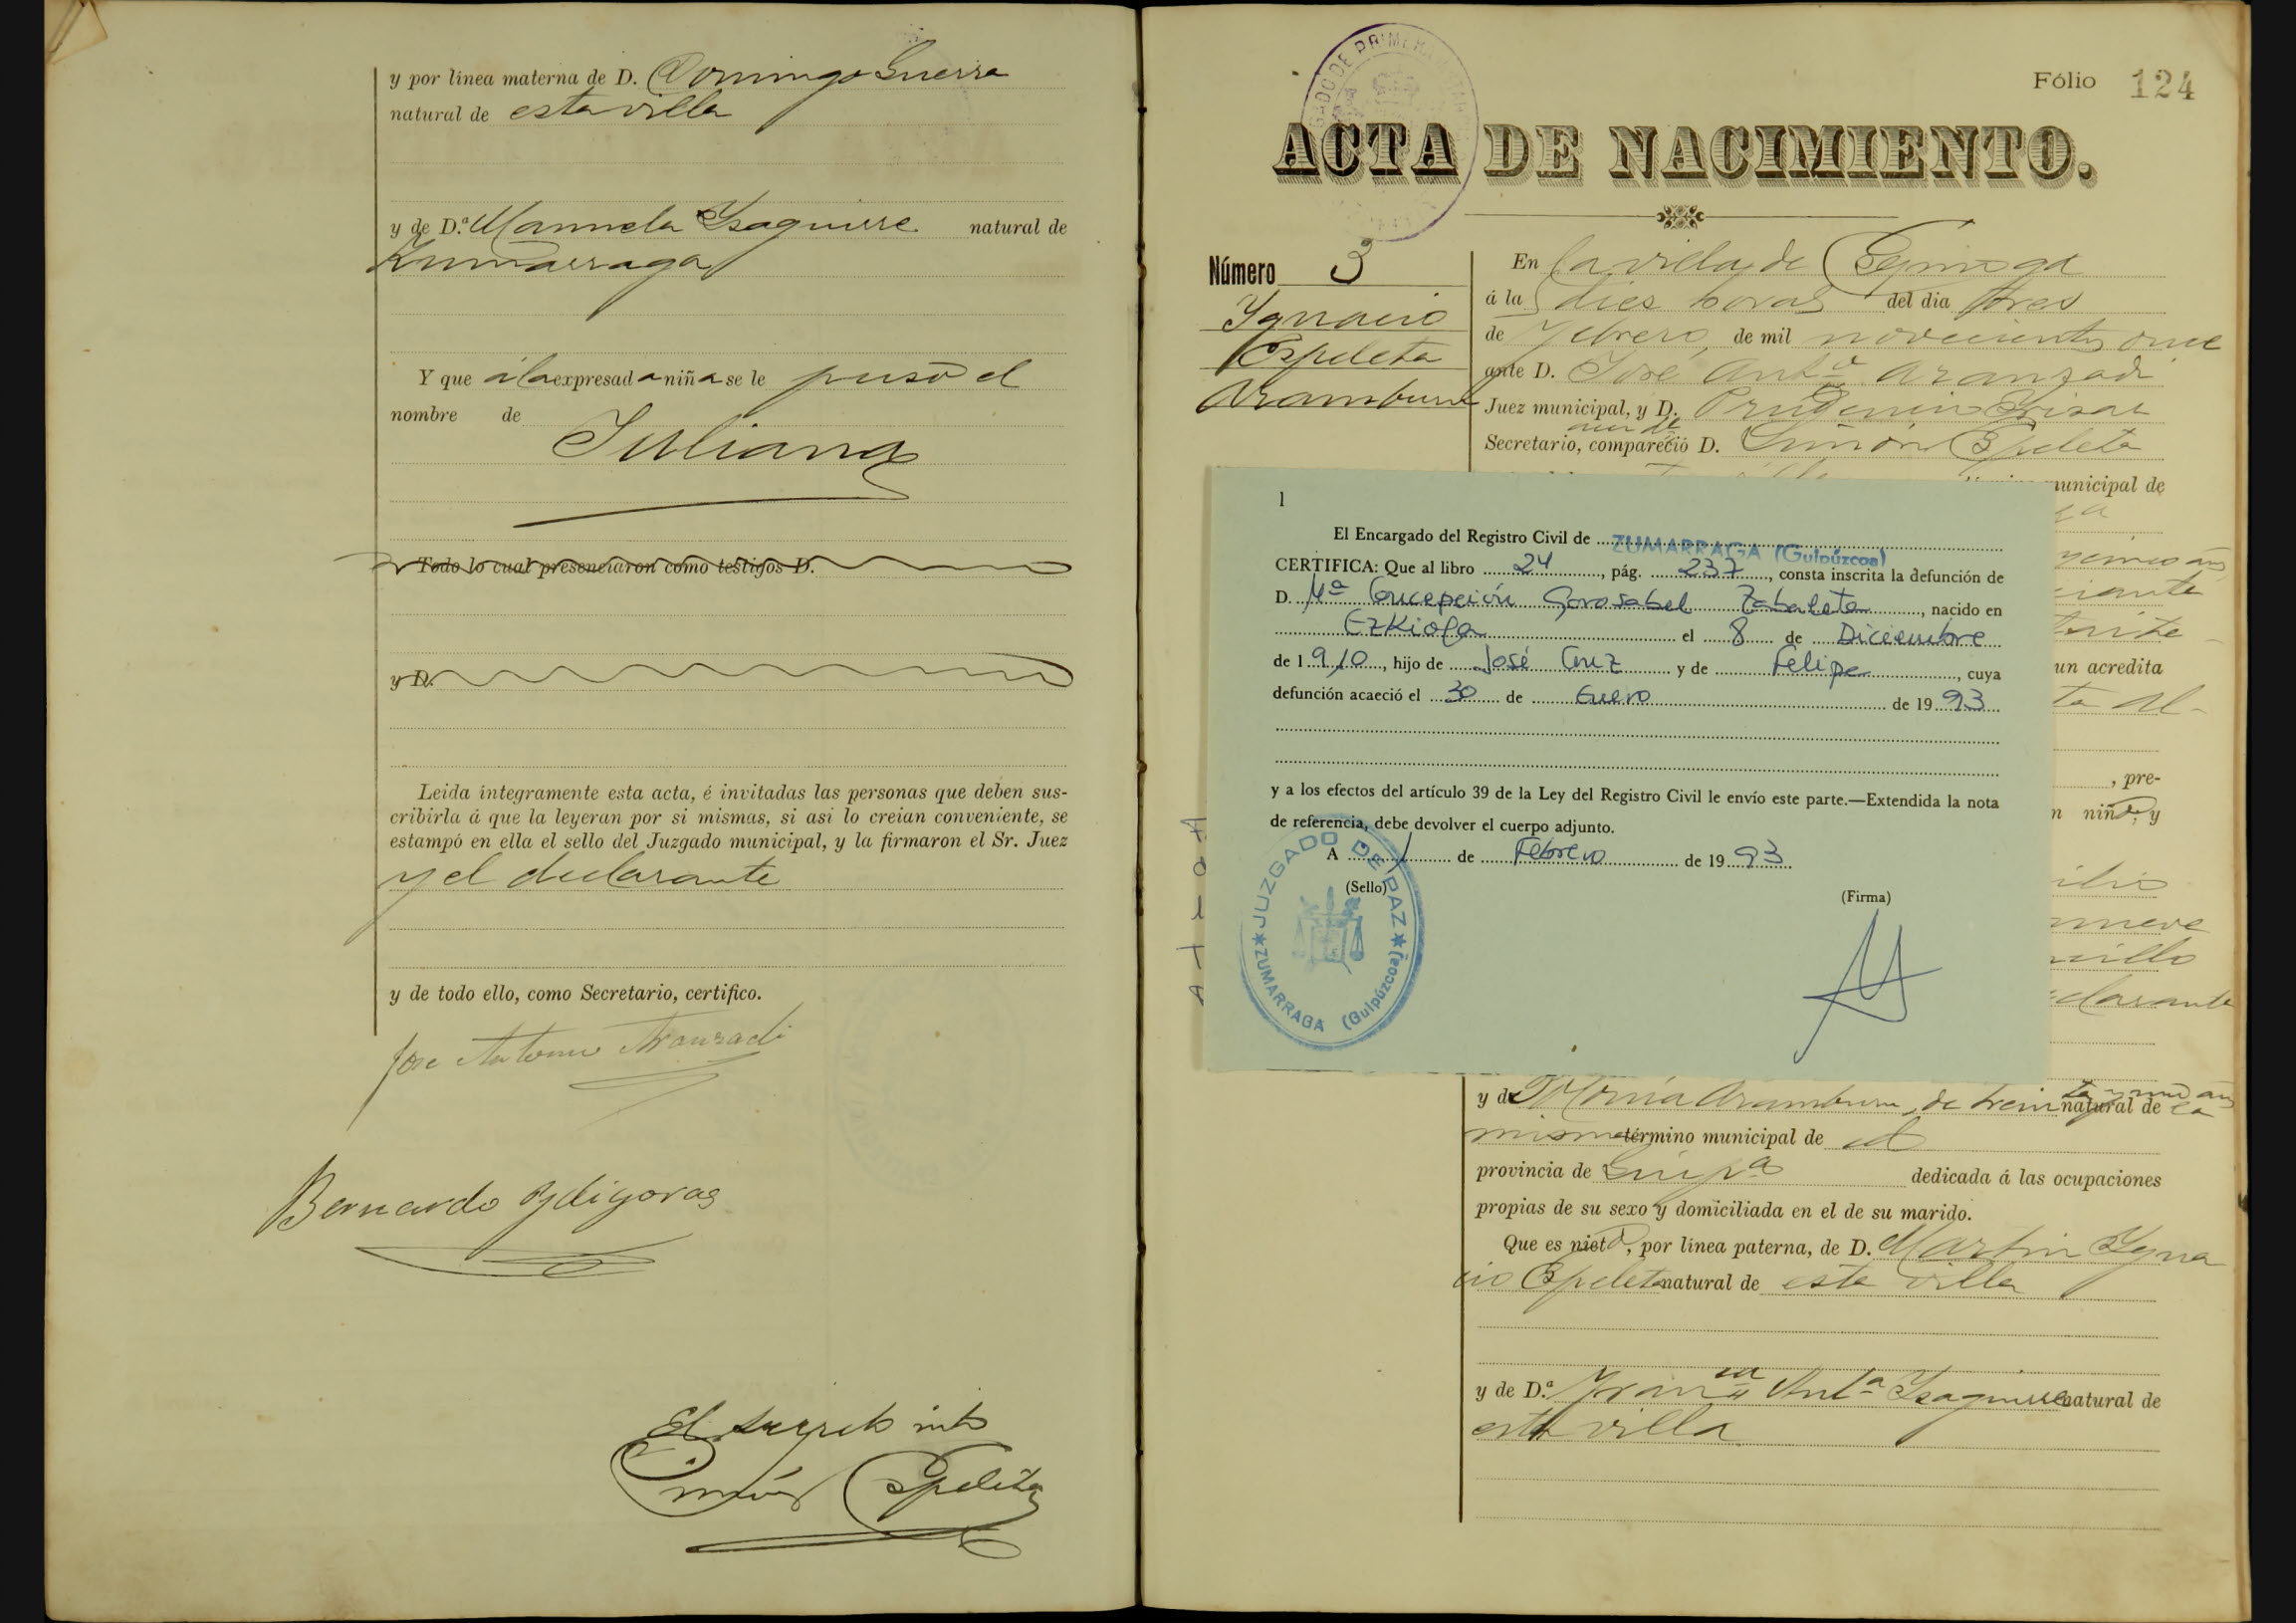 y por línea materna de D. Domingo Guerra
natural de esta villa
y de D.ª Manuela Ysaguirre natural de
Zumarraga
Y que á la expresada niña se le puso el
nombre de
Juliana
Todo lo cual presenciaron como testigos D.
y D.
Leida íntegramente esta acta, é invitadas las personas que deben sus-
cribirla á que la leyeran por si mismas, si asi lo creian conveniente, se
estampó en ella el sello del Juzgado municipal, y la firmaron el Sr. Juez
y el declarante
y de todo ello, como Secretario, certifico.
Jose Antonio Aranzadi
Bernardo Ydigoras
El secreto into
Simón Espeleta
Fólio 124
ACTA DE NACIMIENTO.
Número 3
Ygnacio
Espeleta
Aramburu
En la villa de Ezquioga
á la diez horas del dia tres
de Febrero de mil novecientos once
ante D. José Antº Aranzadi
Juez municipal, y D. Prudencio
Secretario, compareció D. Simón Espeleta
municipal de
un acredita
ta Al-
, pre-
n niño, y
nueve
clarante
1
El Encargado del Registro Civil de ZUMARRAGA (Guipúzcoa)
CERTIFICA: Que al libro 24, pág. 237, consta inscrita la defunción de
D. Mª Concepción Gorosabel Zabaleta, nacido en
Ezkioga el 8 de Diciembre
de 1910, hijo de José Cruz y de Felipe, cuya
defunción acaeció el 30 de Enero de 1993
y a los efectos del artículo 39 de la Ley del Registro Civil le envío este parte.—Extendida la nota
de referencia, debe devolver el cuerpo adjunto.
A 1 de Febrero de 1993
(Sello)
(Firma)
JUZGADO DE PAZ
ZUMARRAGA (Guipúzcoa)
y de Dª María Aramburu, de treinta y un años natural de la
misma término municipal de id
provincia de Guipª dedicada á las ocupaciones
propias de su sexo y domiciliada en el de su marido.
Que es nieto, por línea paterna, de D. Martin Ygna
cio Espeleta natural de esta villa
y de D.ª Franca Antª Ysaguirre natural de
esta villa